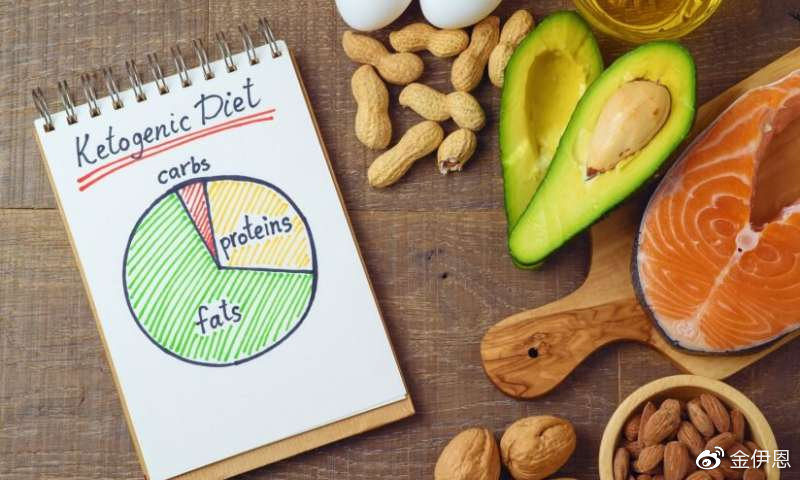 Ketogenic Diet
carbs
proteins
fats
金伊恩